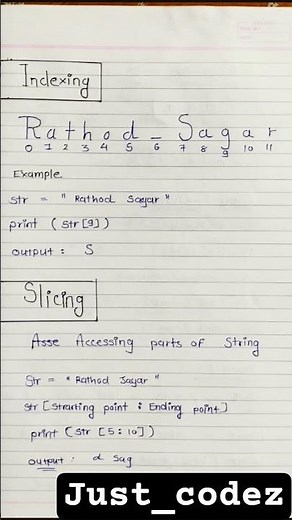 Indexing
Rathod _ Sagar
0 1 2 3 4 5 6 7 8 9 10 11
Example
str = "Rathod Sagar"
print (str[9])
output : S
Slicing
Asse Accessing parts of String
Str = "Rathod Sagar"
str [Starting point : Ending point]
print (str [5:10])
output : d Sag
Just_codez